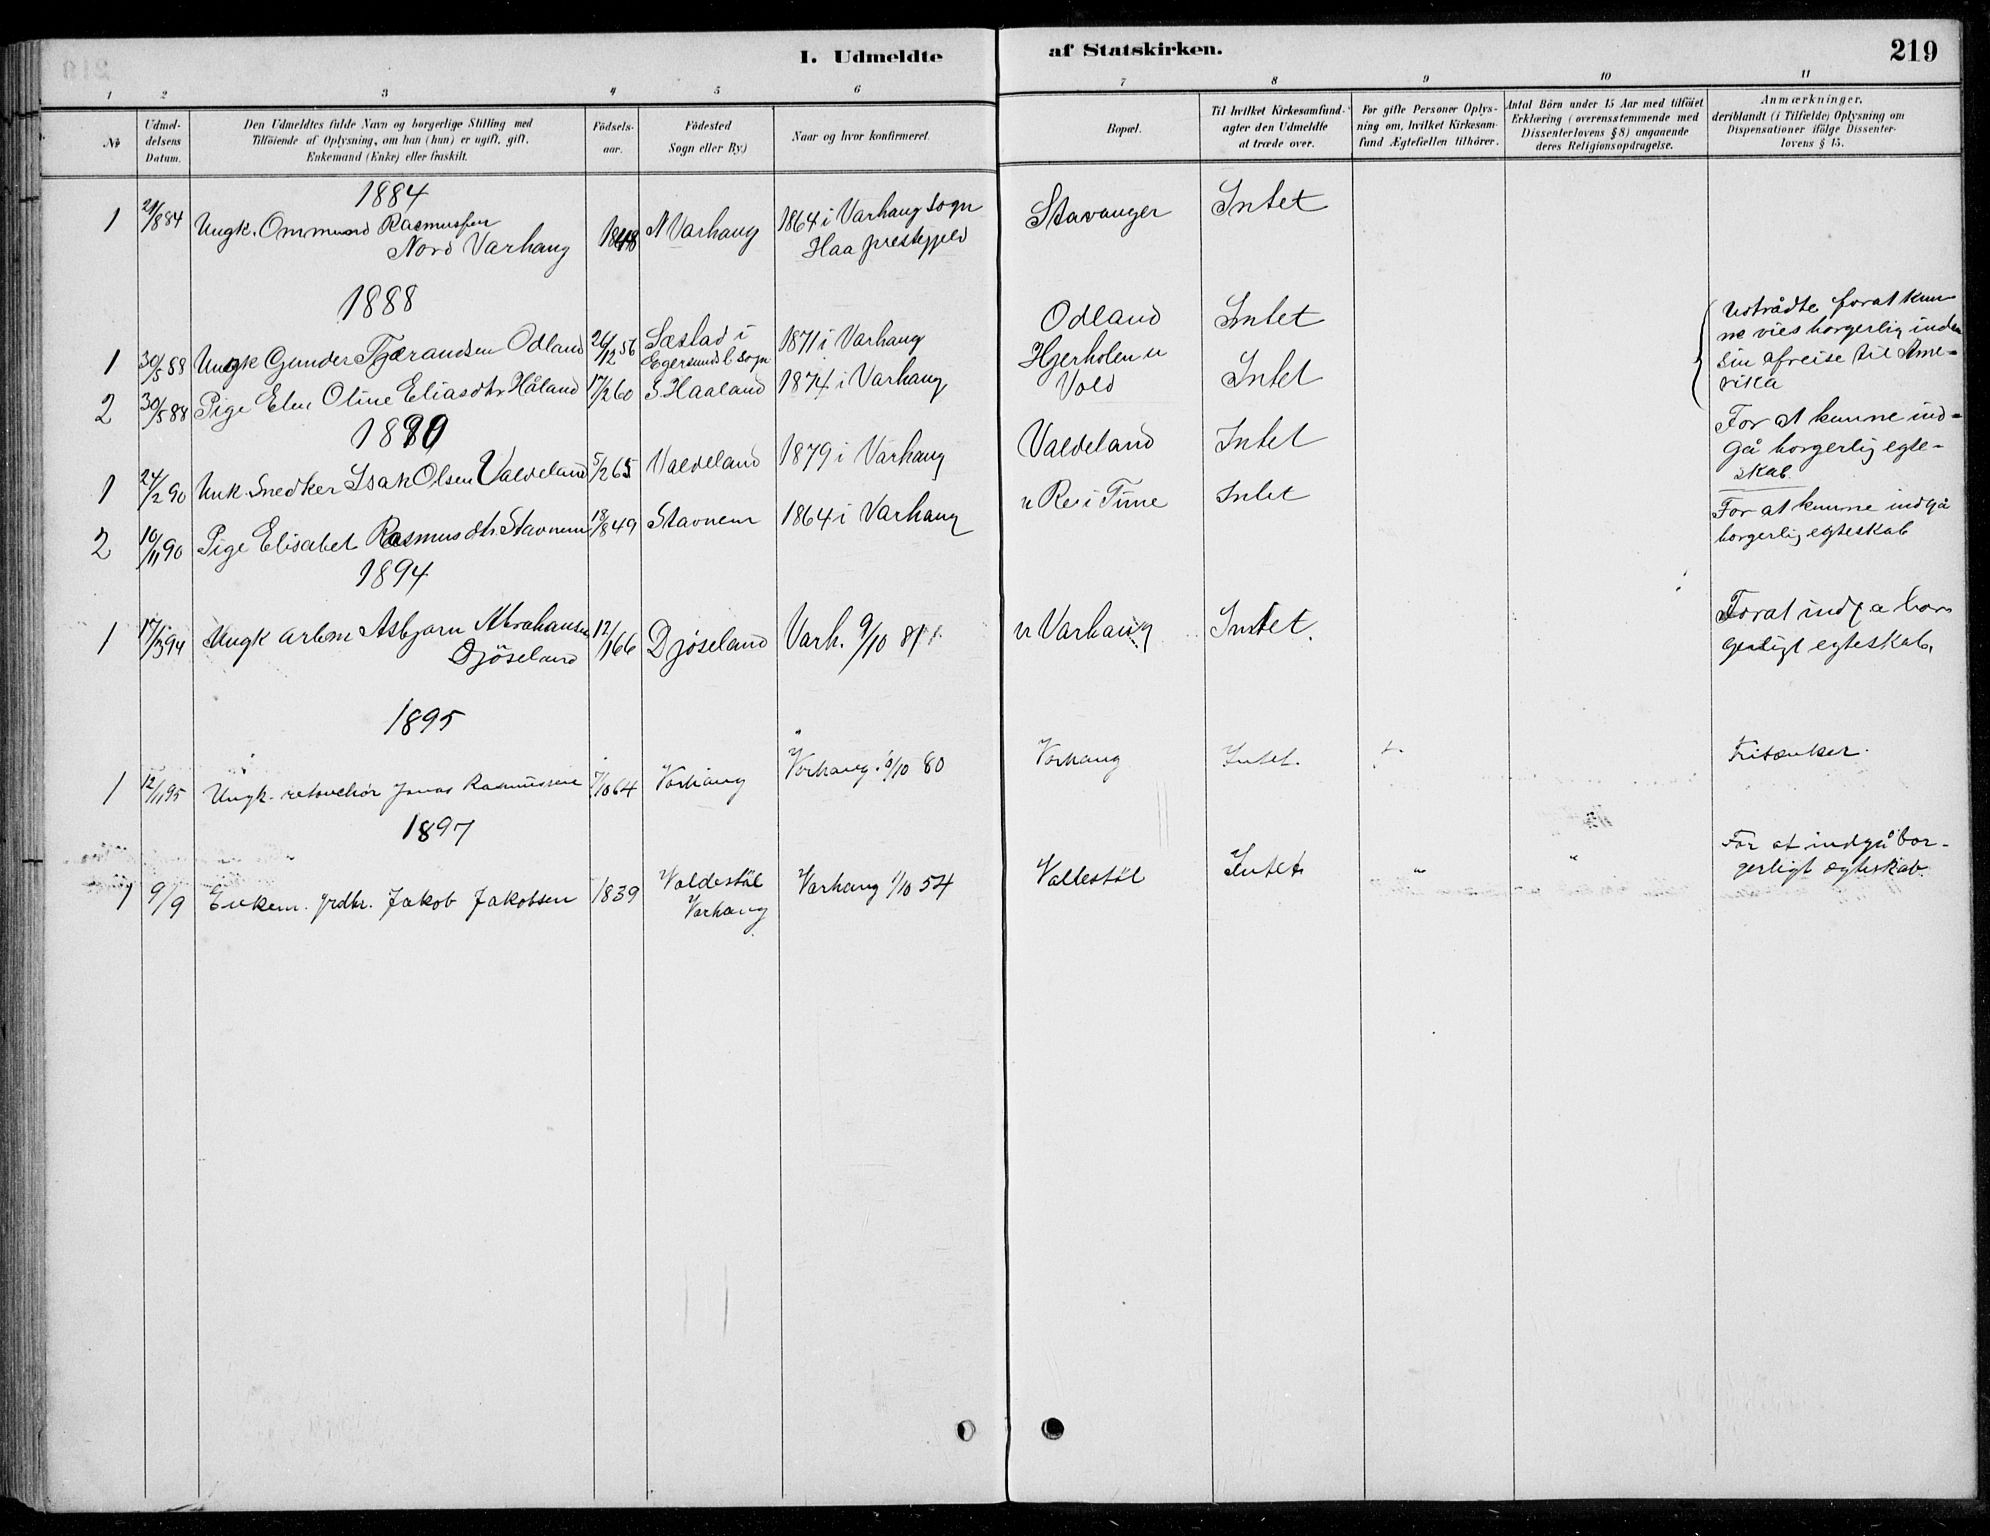 I. Udmeldte af Statskirken. 219
1 2 3 4 5 6 7 8 9 10 11
No
Udmeldelsens Datum.
Den Udmeldtes fulde Navn og borgerlige Stilling med
Tilföiende af Oplysning, om han (hun) er ugift, gift,
Enkemand (Enke) eller fraskilt.
Födselsaar.
Födested
Sogn eller By.)
Naar og hvor konfirmeret.
Bopæl.
Til hvilket Kirkesamfund
agter den Udmeldte
at træde over.
For gifte Personer Oplys-
ning om, hvilket Kirkesam-
fund Ægtefællen tilhörer.
Antal Börn under 15 Aar med tilföiet
Erklæring (overensstemmende med
Dissenterlovens § 8) angaaende
deres Religionsopdragelse.
Anmærkninger,
deriblandt (i Tilfælde) Oplysning om
Dispensationer ifölge Dissenter-
lovens § 15.
1884
1 21/8 84 Ungk. Ommund Rasmussen Nord Varhaug 1848 N Varhaug 1864 i Varhaug sogn Haa prestegjeld Stavanger Intet
1888
1 30/5 88 Ungk Gunder Tjerandsen Odland 26/12 56 Sæstad i Egersunds l. sogn 1871 i Varhaug Odland Intet
2 30/5 88 Pige Elen Oline Eliasdtr Håland 17/2 60 S. Haaland 1874 i Varhaug Hjerholen u Vold Intet
Udtrådte forat kun-
ne vies borgerlig inden
sin afreise til Ame-
rika
1890
1 24/2 90 Unk Snedker Isak Olsen Valdeland 5/2 65 Valdeland 1879 i Varhaug Valdeland Intet
For at kunne ind-
gå borgerlig egte-
skab
2 10/11 90 Pige Elisabet Rasmusdtr Stavnem 18/8 49 Stavnem 1864 i Varhaug u Re i Time Intet
For at kunne indgå
borgerlig egteskab
1894
1 17/3 94 Ungk arbm Asbjørn Abrahamsen Djöseland 12/1 66 Djöseland Varh. 9/10 81 u Varhaug Intet.
Forat indga bor
gerligt egteskab.
1895
1 12/11 95 Ungk. Jonas Rasmussen 7/10 64 Varhaug Varhaug 10 80 Varhaug Intet. Fritænker.
1897
1 9/9 Enkem. grdbr. Jakob Jakobsen 1839 Valdestöl Varhaug Varhaug 1/10 54 Vallestöl Intet " "
For at indgå bor-
gerligt ægteskab